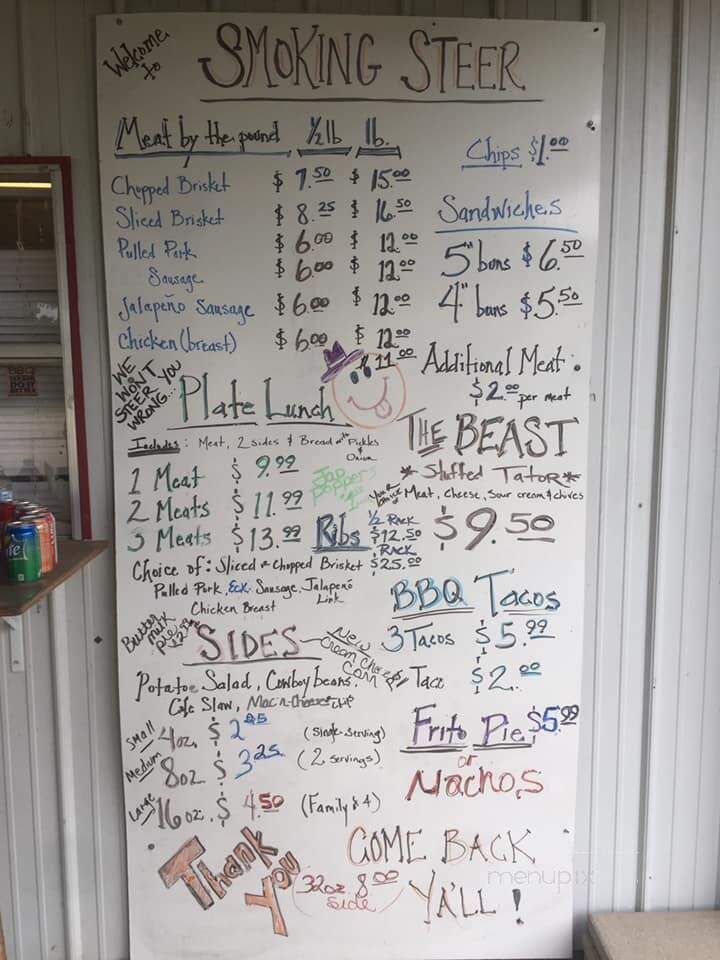 Welcome to
SMOKING STEER
Meat by the pound ½ lb lb.
Chopped Brisket $7.50 $15.00
Sliced Brisket $8.25 $16.50
Pulled Pork $6.00 $12.00
Sausage $6.00 $12.00
Jalapeño Sausage $6.00 $12.00
Chicken (breast) $6.00 $12.00
Chips $1.00
Sandwiches
5" buns $6.50
4" buns $5.50
Additional Meat:
$2.00 per meat
WE WON'T STEER YOU WRONG...
Plate Lunch
Includes: Meat, 2 sides & Bread Pickles
Onion
1 Meat $9.99
2 Meats $11.99
3 Meats $13.99
Jap Poppers
Choice of: Sliced or Chopped Brisket
Pulled Pork, Sausage, Jalapeño Link
Chicken Breast
Ribs ½ Rack $12.50
Rack $25.00
THE BEAST
*Stuffed Tator*
Your choice Meat, Cheese, Sour cream & chives
$9.50
BBQ Tacos
3 Tacos $5.99
Taco $2.00
Butter milk Pie
SIDES
New Cream Cheese Corn
Potatoe Salad, Cowboy beans
Cole Slaw, Mac-n-Cheese
Small 4oz. $2
(Single-serving)
Medium 8oz $3.25
(2 servings)
Large 16oz. $4.50
(Family 4)
Frito Pie $5.99
or
Nachos
Thank You
32oz 8.00
side
COME BACK
YA'LL!
menupix